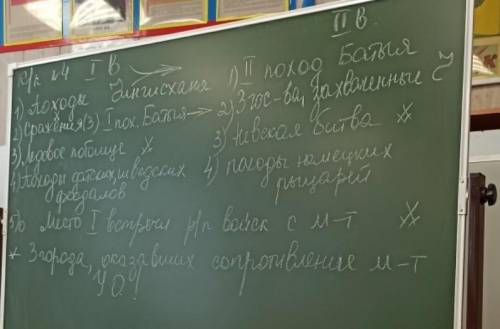 К/р №4 I В
1) Походы Чингисхана
2) сражения(3) I пох. Батыя
3) Ледовое побоище
4) Походы датских, шведских
феодалов
II В.
1) II поход Батыя
2) 3 гос-ва, захваченные
3) Невская битва
4) походы немецких
рыцарей
Место I встречи р/п войск с м-т
* 3 города, оказавших сопротивление м-т
У О.